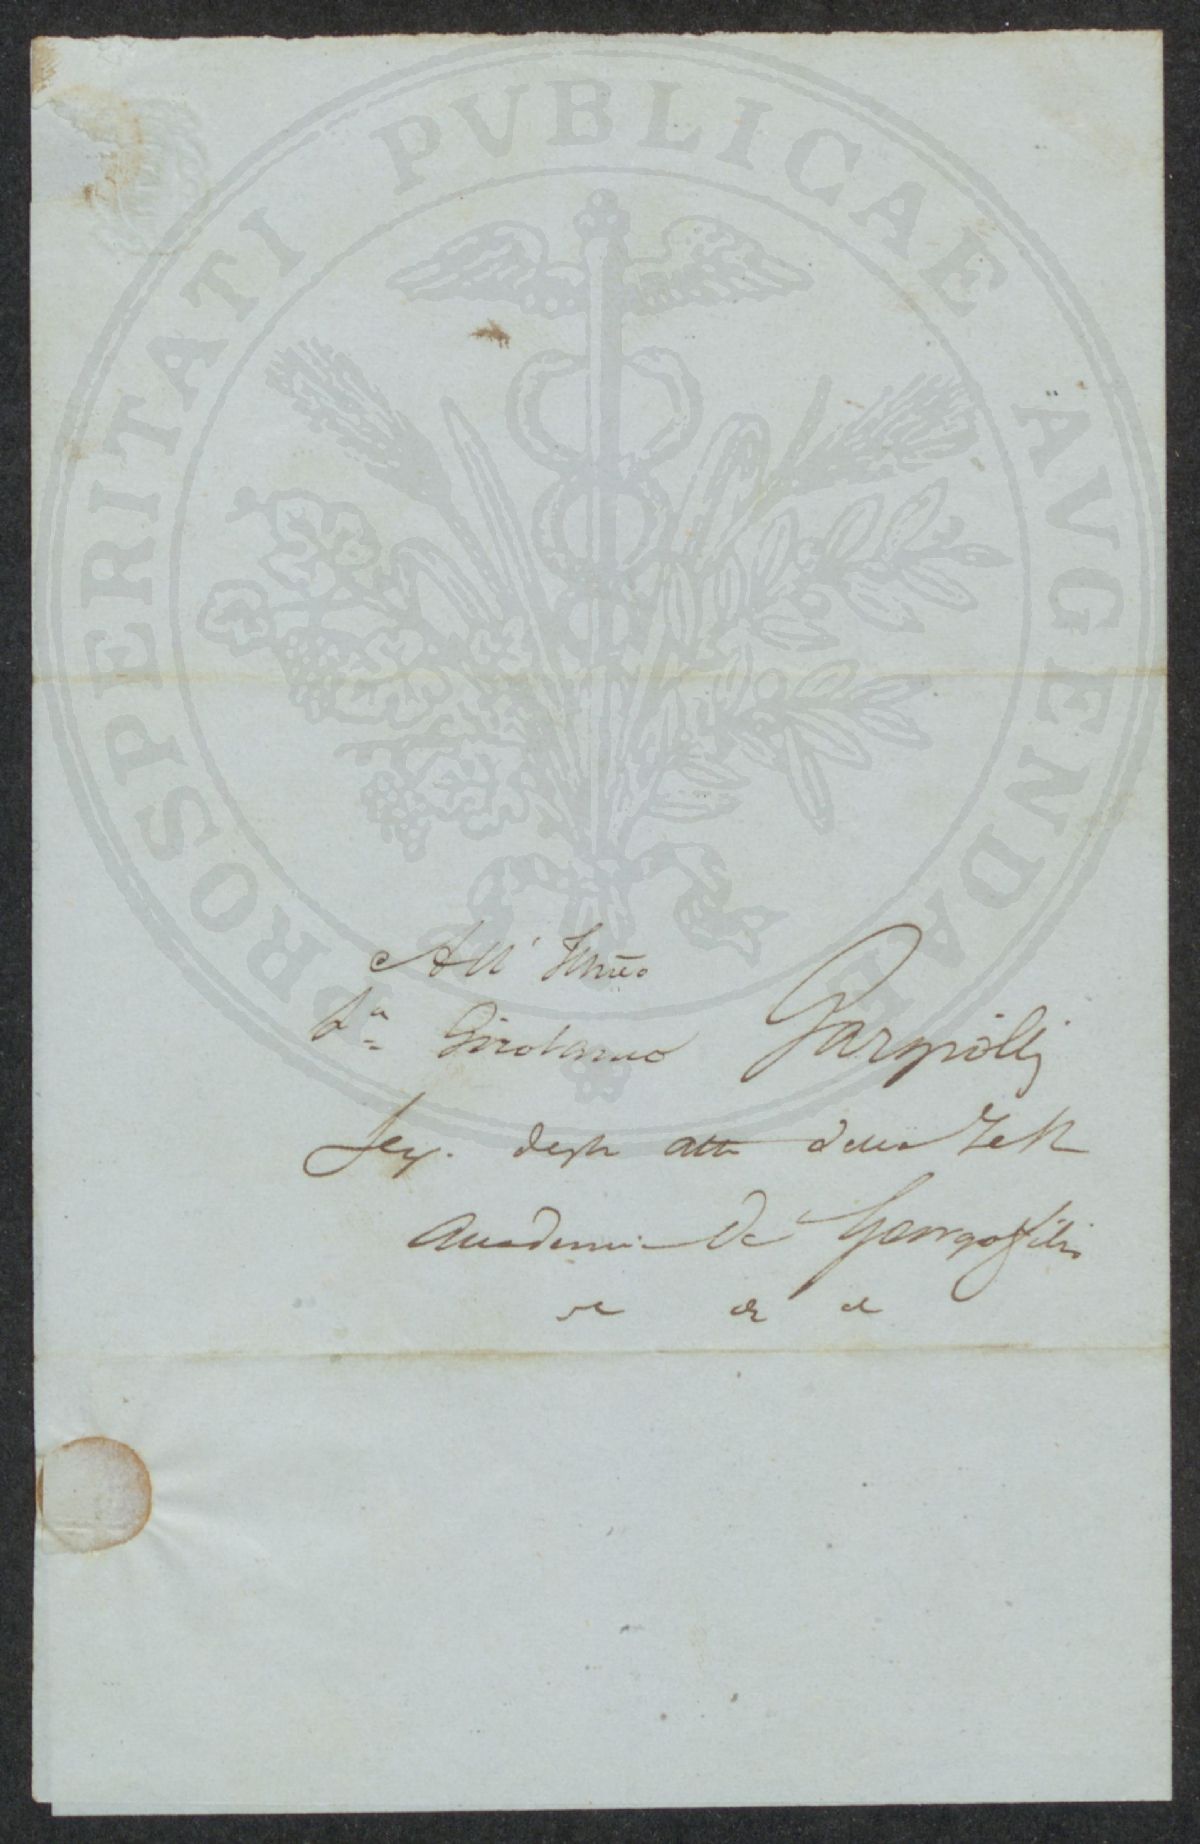 PROSPERITATI PVBLICAE AVGENDAE
All' Illmo
Sr. Girolamo Gargiolli
Seg. degli atti della
Accademia de Georgofili